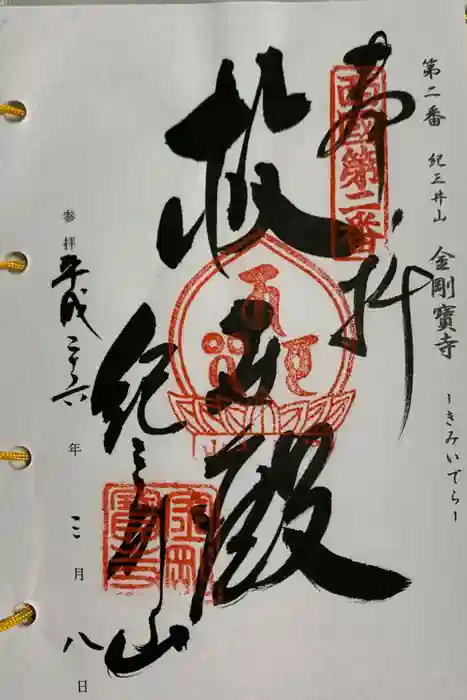 第二番 紀三井山 金剛寶寺 ーきみいでらー
奉拝
西國第二番
救世殿
紀三井山
参拝 平成二十六年三月八日